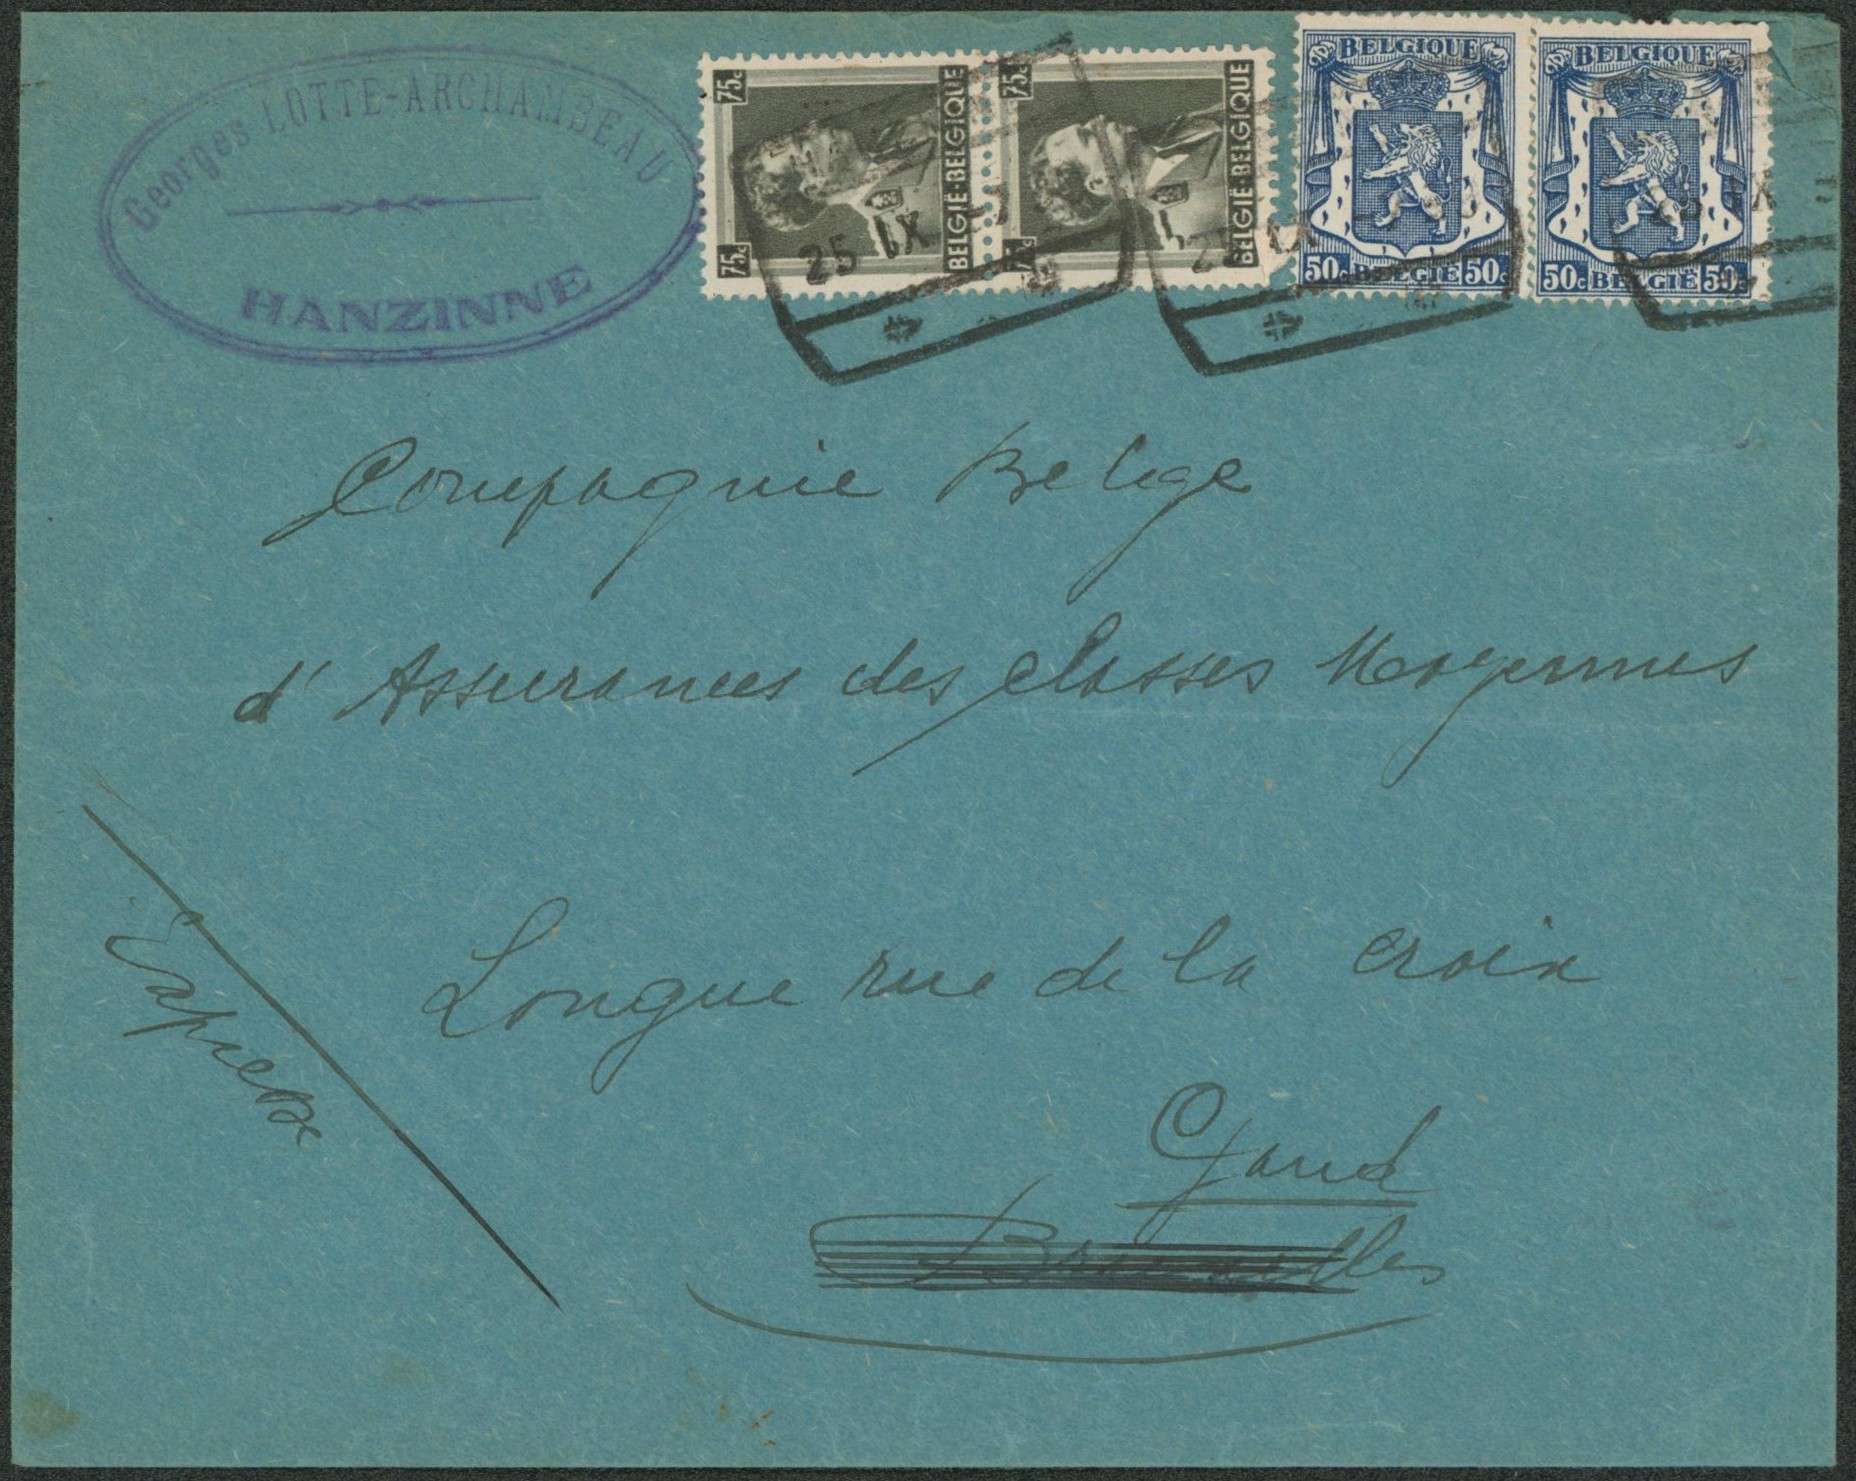 Georges LOTTE-ARCHAMBEAU
HANZINNE
75c
BELGIË-BELGIQUE
75c
75c
BELGIË-BELGIQUE
75c
BELGIQUE
50c BELGIE 50c
BELGIQUE
50c BELGIE 50c
25 IX
Compagnie Belge
d'Assurances des classes Moyennes
Longue rue de la croix
Gand
Bruxelles
Express